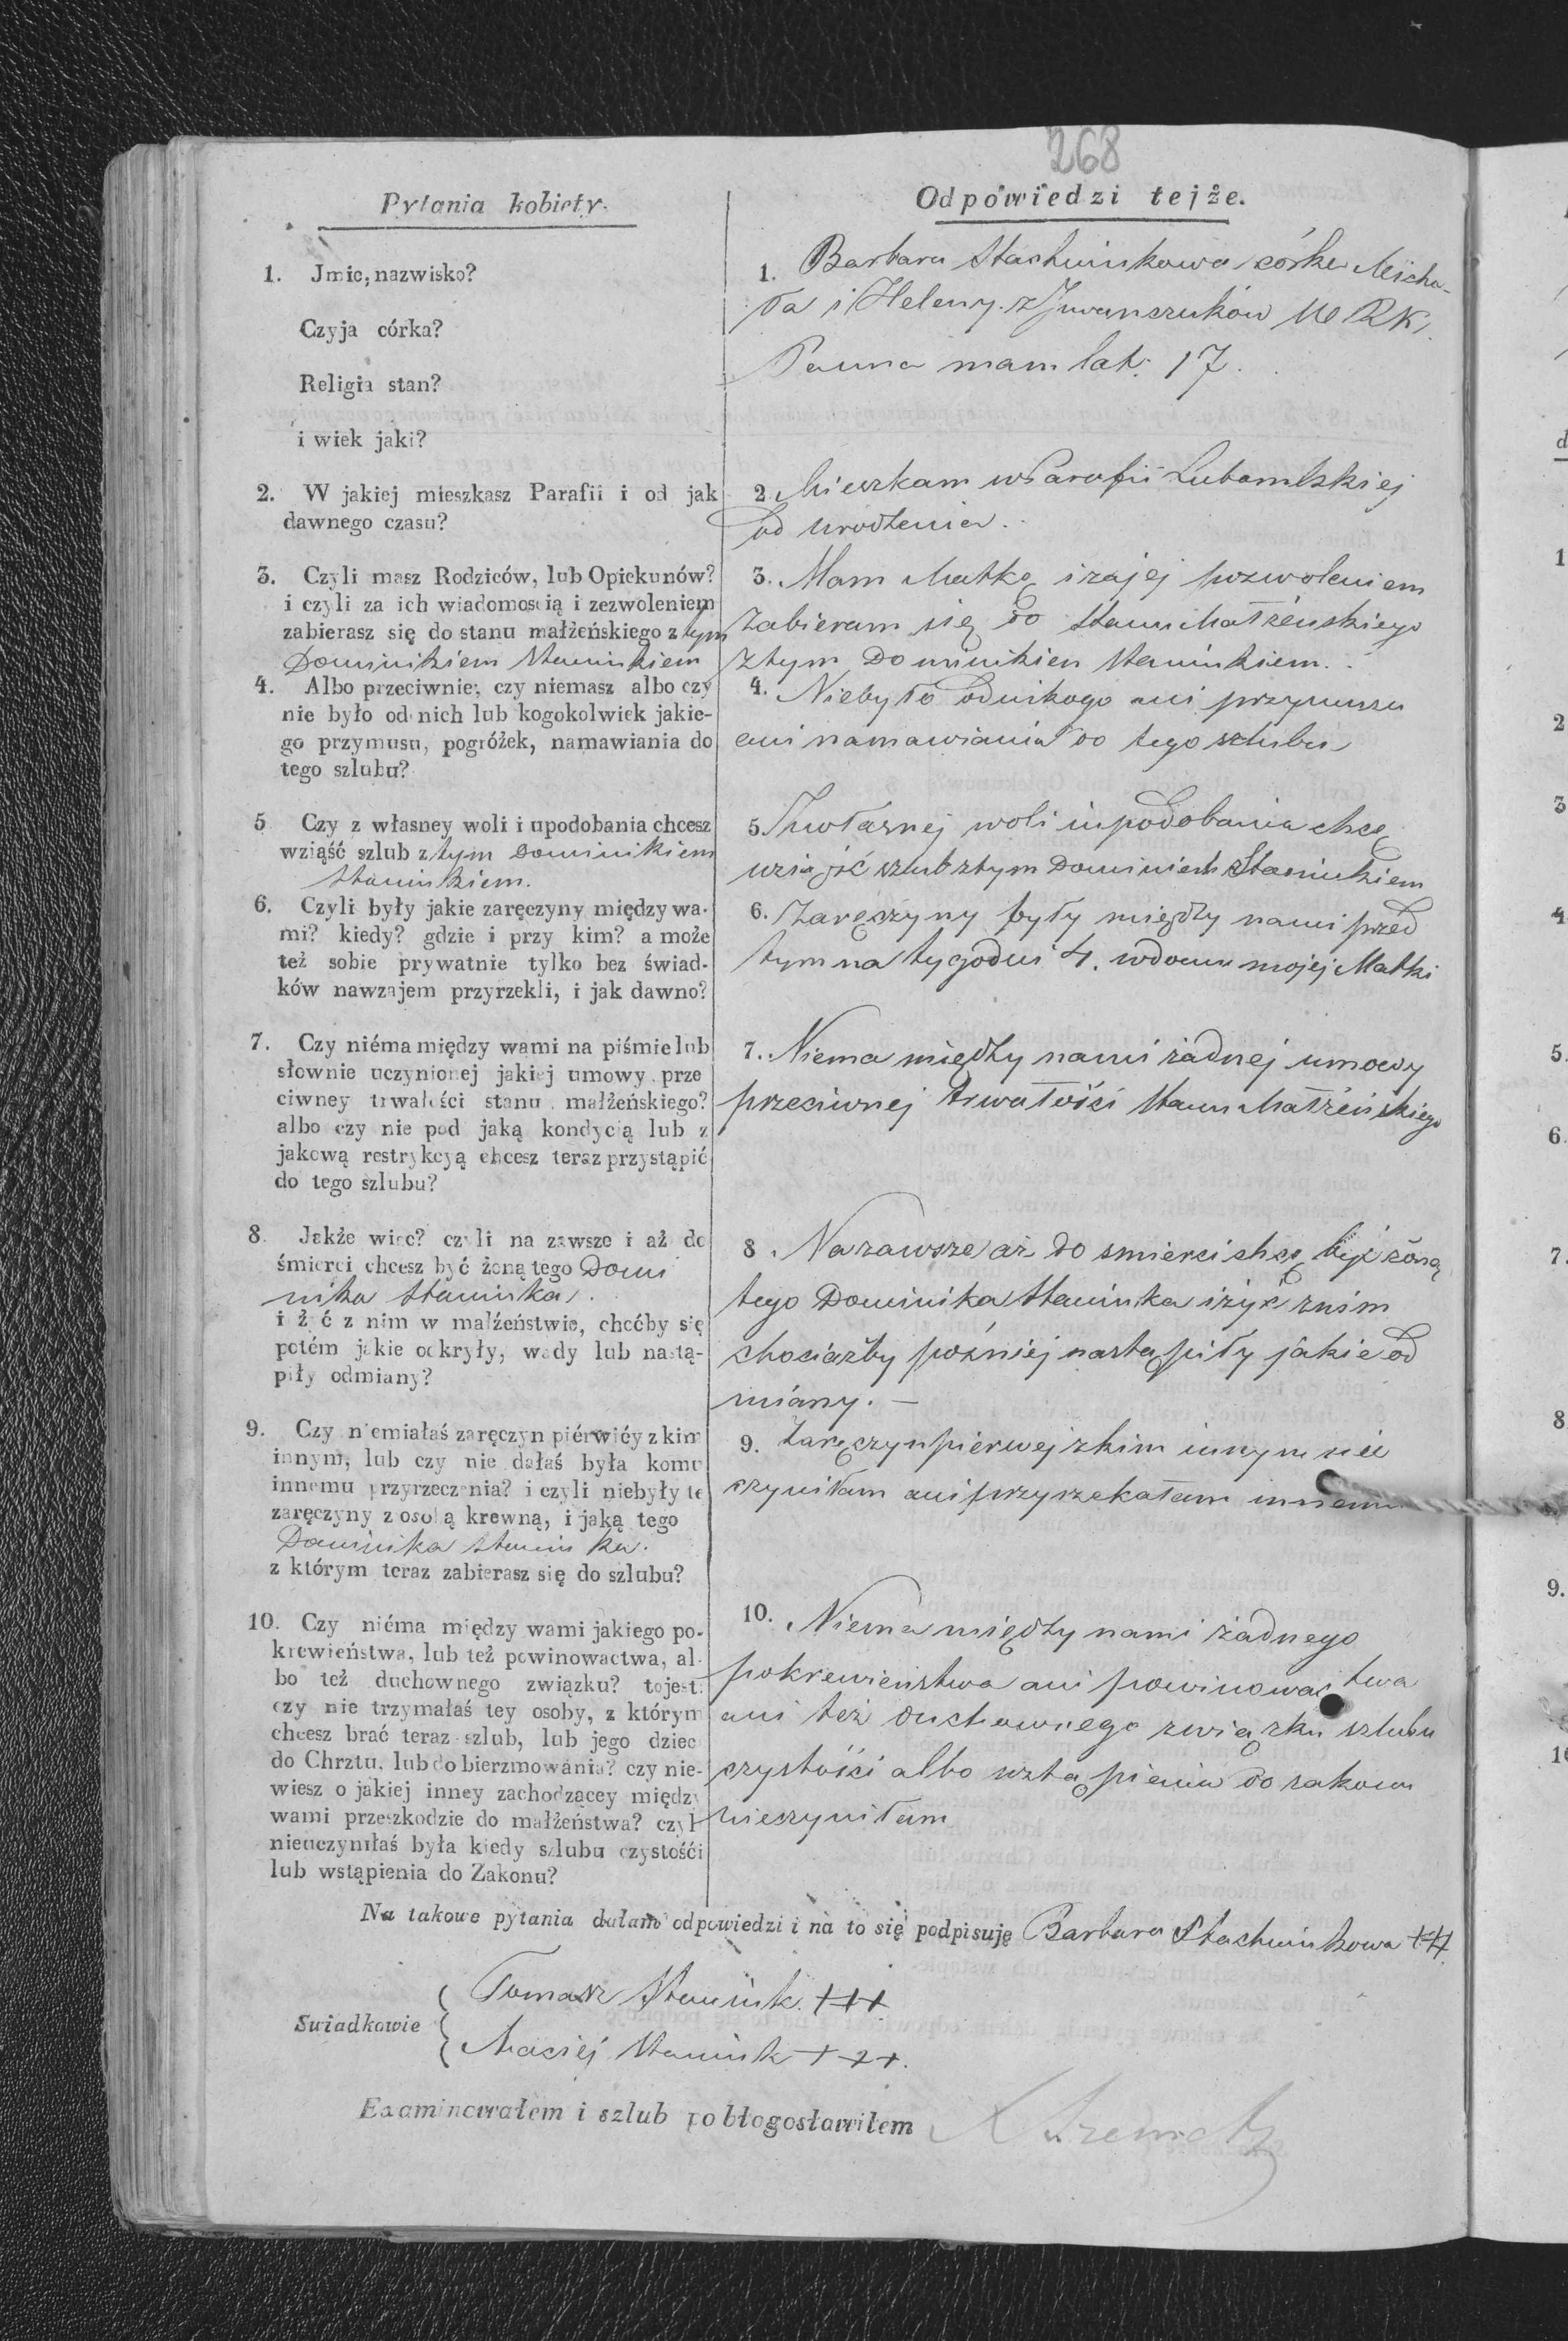 268
Pytania kobiety.
1. Jmie, nazwisko?
Czyja córka?
Religia stan?
i wiek jaki?
2. W jakiej mieszkasz Parafii i od jak
dawnego czasu?
3. Czyli masz Rodziców, lub Opiekunów?
i czyli za ich wiadomością i zezwoleniem
zabierasz się do stanu małżeńskiego z tym
Dominikiem Staniukiem
4. Albo przeciwnie, czy niemasz albo czy
nie było od nich lub kogokolwiek jakie-
go przymusu, pogróżek, namawiania do
tego szlubu?
5 Czy z własney woli i upodobania chcesz
wziąść szlub z tym Dominikiem
Staniukiem.
6. Czyli były jakie zaręczyny między wa-
mi? kiedy? gdzie i przy kim? a może
też sobie prywatnie tylko bez świad-
ków nawzajem przyrzekli, i jak dawno?
7. Czy niéma między wami na piśmie lub
słownie uczynionej jakiej umowy prze
ciwney trwałości stanu małżeńskiego?
albo czy nie pod jaką kondycią lub z
jakową restrykcyą chcesz teraz przystąpić
do tego szlubu?
8. Jakże więc? czyli na zawsze i aż do
śmierci chcesz być żoną tego Domi
nika Staniuka.
i żyć z nim w małżeństwie, choćby się
potém jakie odkryły, wady lub nastą-
piły odmiany?
9. Czy niemiałaś zaręczyn piérwiéy z kim
innym, lub czy nie dałaś była komu
innemu przyrzeczenia? i czyli niebyły te
zaręczyny z osobą krewną, i jaką tego
Dominika Staniuka.
z którym teraz zabierasz się do szlubu?
10. Czy niéma między wami jakiego po-
krewieństwa, lub też powinowactwa, al-
bo też duchownego związku? tojest:
czy nie trzymałaś tey osoby, z którym
chcesz brać teraz szlub, lub jego dziec
do Chrztu, lub do bierzmowania? czy nie-
wiesz o jakiej inney zachodzącey między
wami przeszkodzie do małżeństwa? czyl
nieuczyniłaś była kiedy szlubu czystości
lub wstąpienia do Zakonu?
Odpowiedzi tejże.
1. Barbara Stachniukowa córka Micha-
ła i Heleny z Jwanszuków W RK.
Panna mam lat. 17.
2. Mieszkam w Parafii Lubomlskiej
od urodzenia.
3. Mam Matkę i zajej pozwoleniem
zabieram się do Stanu Małżeńskiego
ztym Dominikien Staniukiem.
4. Niebyło odnikogo ani przymusu
ani namawiania do tego szlubu
5. Zwłasnej woli iupodobania chcę
wziąść szlub ztym Dominiem Staniukiem
6. Zaręczyny były między nami przed
tym na tygodni 4. wdomu mojej Matki
7. Niema między nami żadnej umowy
przeciwnej trwałości Stanu Małżeńskiego
8. Nazawsze aż do smierci chcę być żoną
tego Dominika Staniuka iżyć znim
chociażby pózniej nastąpiły jakie od
miany. —
9. Zaręczyn pierwej zkim innym nie
czyniłam ani przyrzekałam innemu
10. Niema między nami żadnego
pokrewieństwa ani powinowactwa
ani też duchownego związku szlubu
czystości albo wstąpienia do zakonu
nieczyniłam
Na takowe pytania dałam odpowiedzi i na to się podpisuję Barbara Stachniukowa +++
Swiadkowie
Tomasz Staniuk. +++
Maciej Staniuk +++.
Examinowałem i szlub pobłogosławiłem